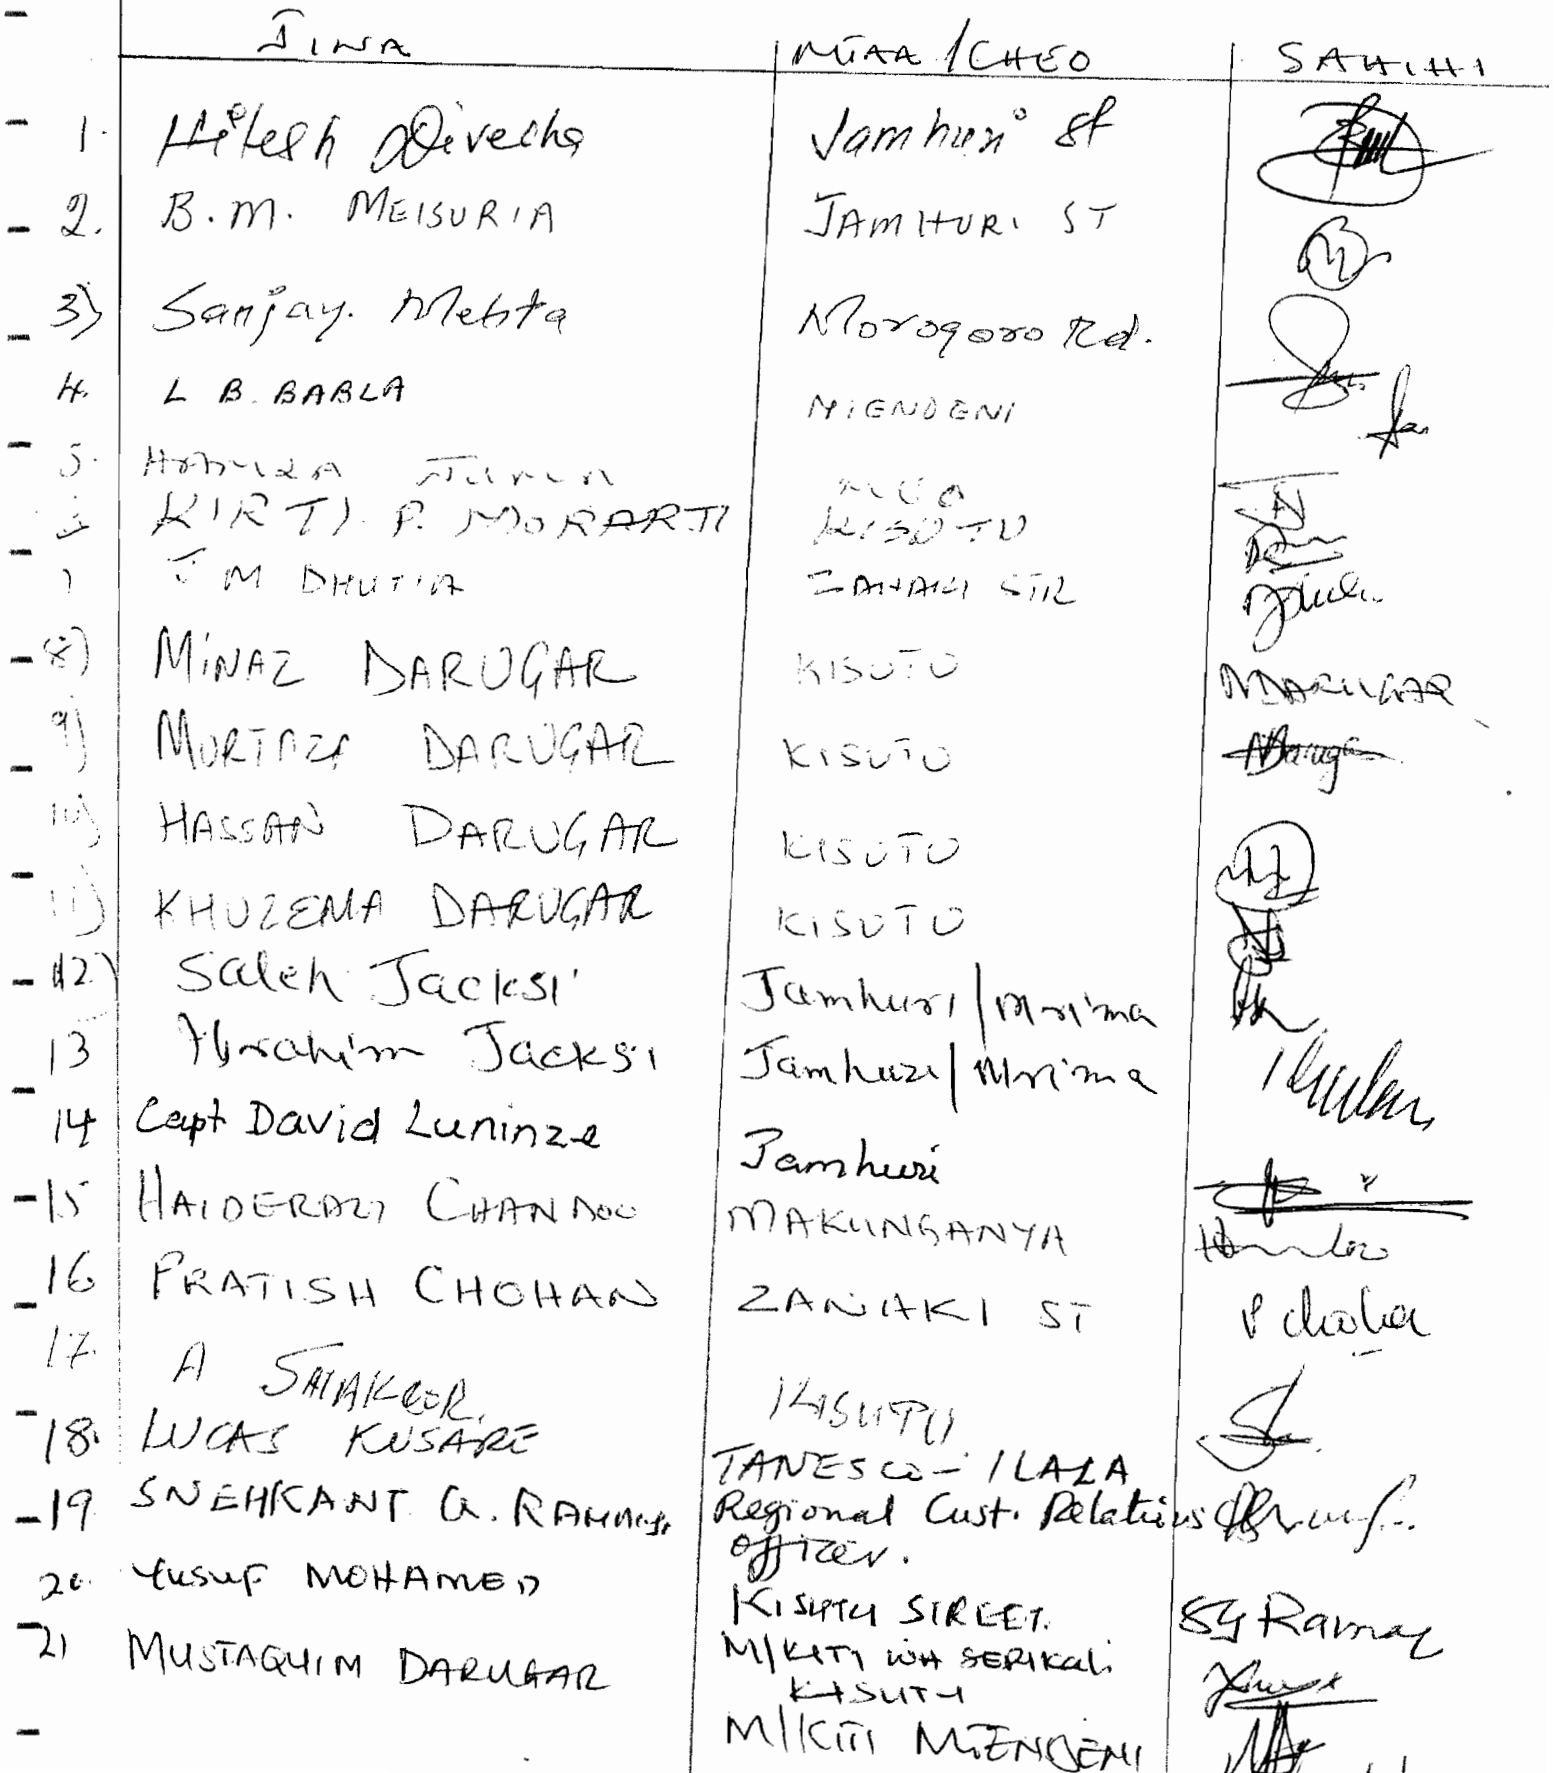 JINA MTAA / CHEO SAHIHI
1. Hitesh Divecha Jamhuri St
2. B.M. MEISURIA JAMHURI ST
3) Sanjay. Mehta Morogoro Rd.
4. L B. BABLA MTENDENI
5. HAMZA
KIRTI P. MORARJI KISUTU
J M DHUTIA ZANAKI STR
8) MINAZ DARUGAR KISUTU NDARUGAR
9) MURTAZA DARUGAR KISUTU
10) HASSAN DARUGAR KISUTU
11) KHUZEMA DARUGAR KISUTU
12) Saleh Jacksi Jamhuri / Mrima
13 Ibrahim Jacksi Jamhuri / Mrima
14 Capt David Luninze Jamhuri
15 CHANDOO MAKUNGANYA
16 PRATISH CHOHAN ZANAKI ST
17. A KISUTU
18. LUCAS KUSARE TANESCO - ILALA
19 SNEHKANT G. Regional Cust. Relations
officer.
20. Yusuf MOHAMED KISUTU STREET.
21 MUSTAQUIM DARUGAR M/KITI WA SERIKALI
KISUTU
M/KITI MTENDENI